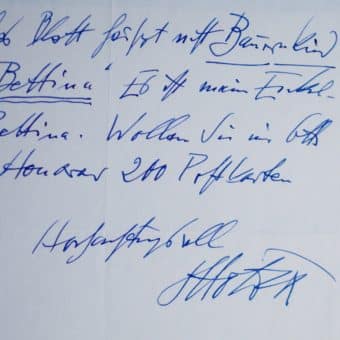 Blatt heißt nicht Bauernkind
Bettina" Es ist mein Enkel-
Bettina. Wollen Sie
Honorar 200 Postkarten
Hochachtungsvoll